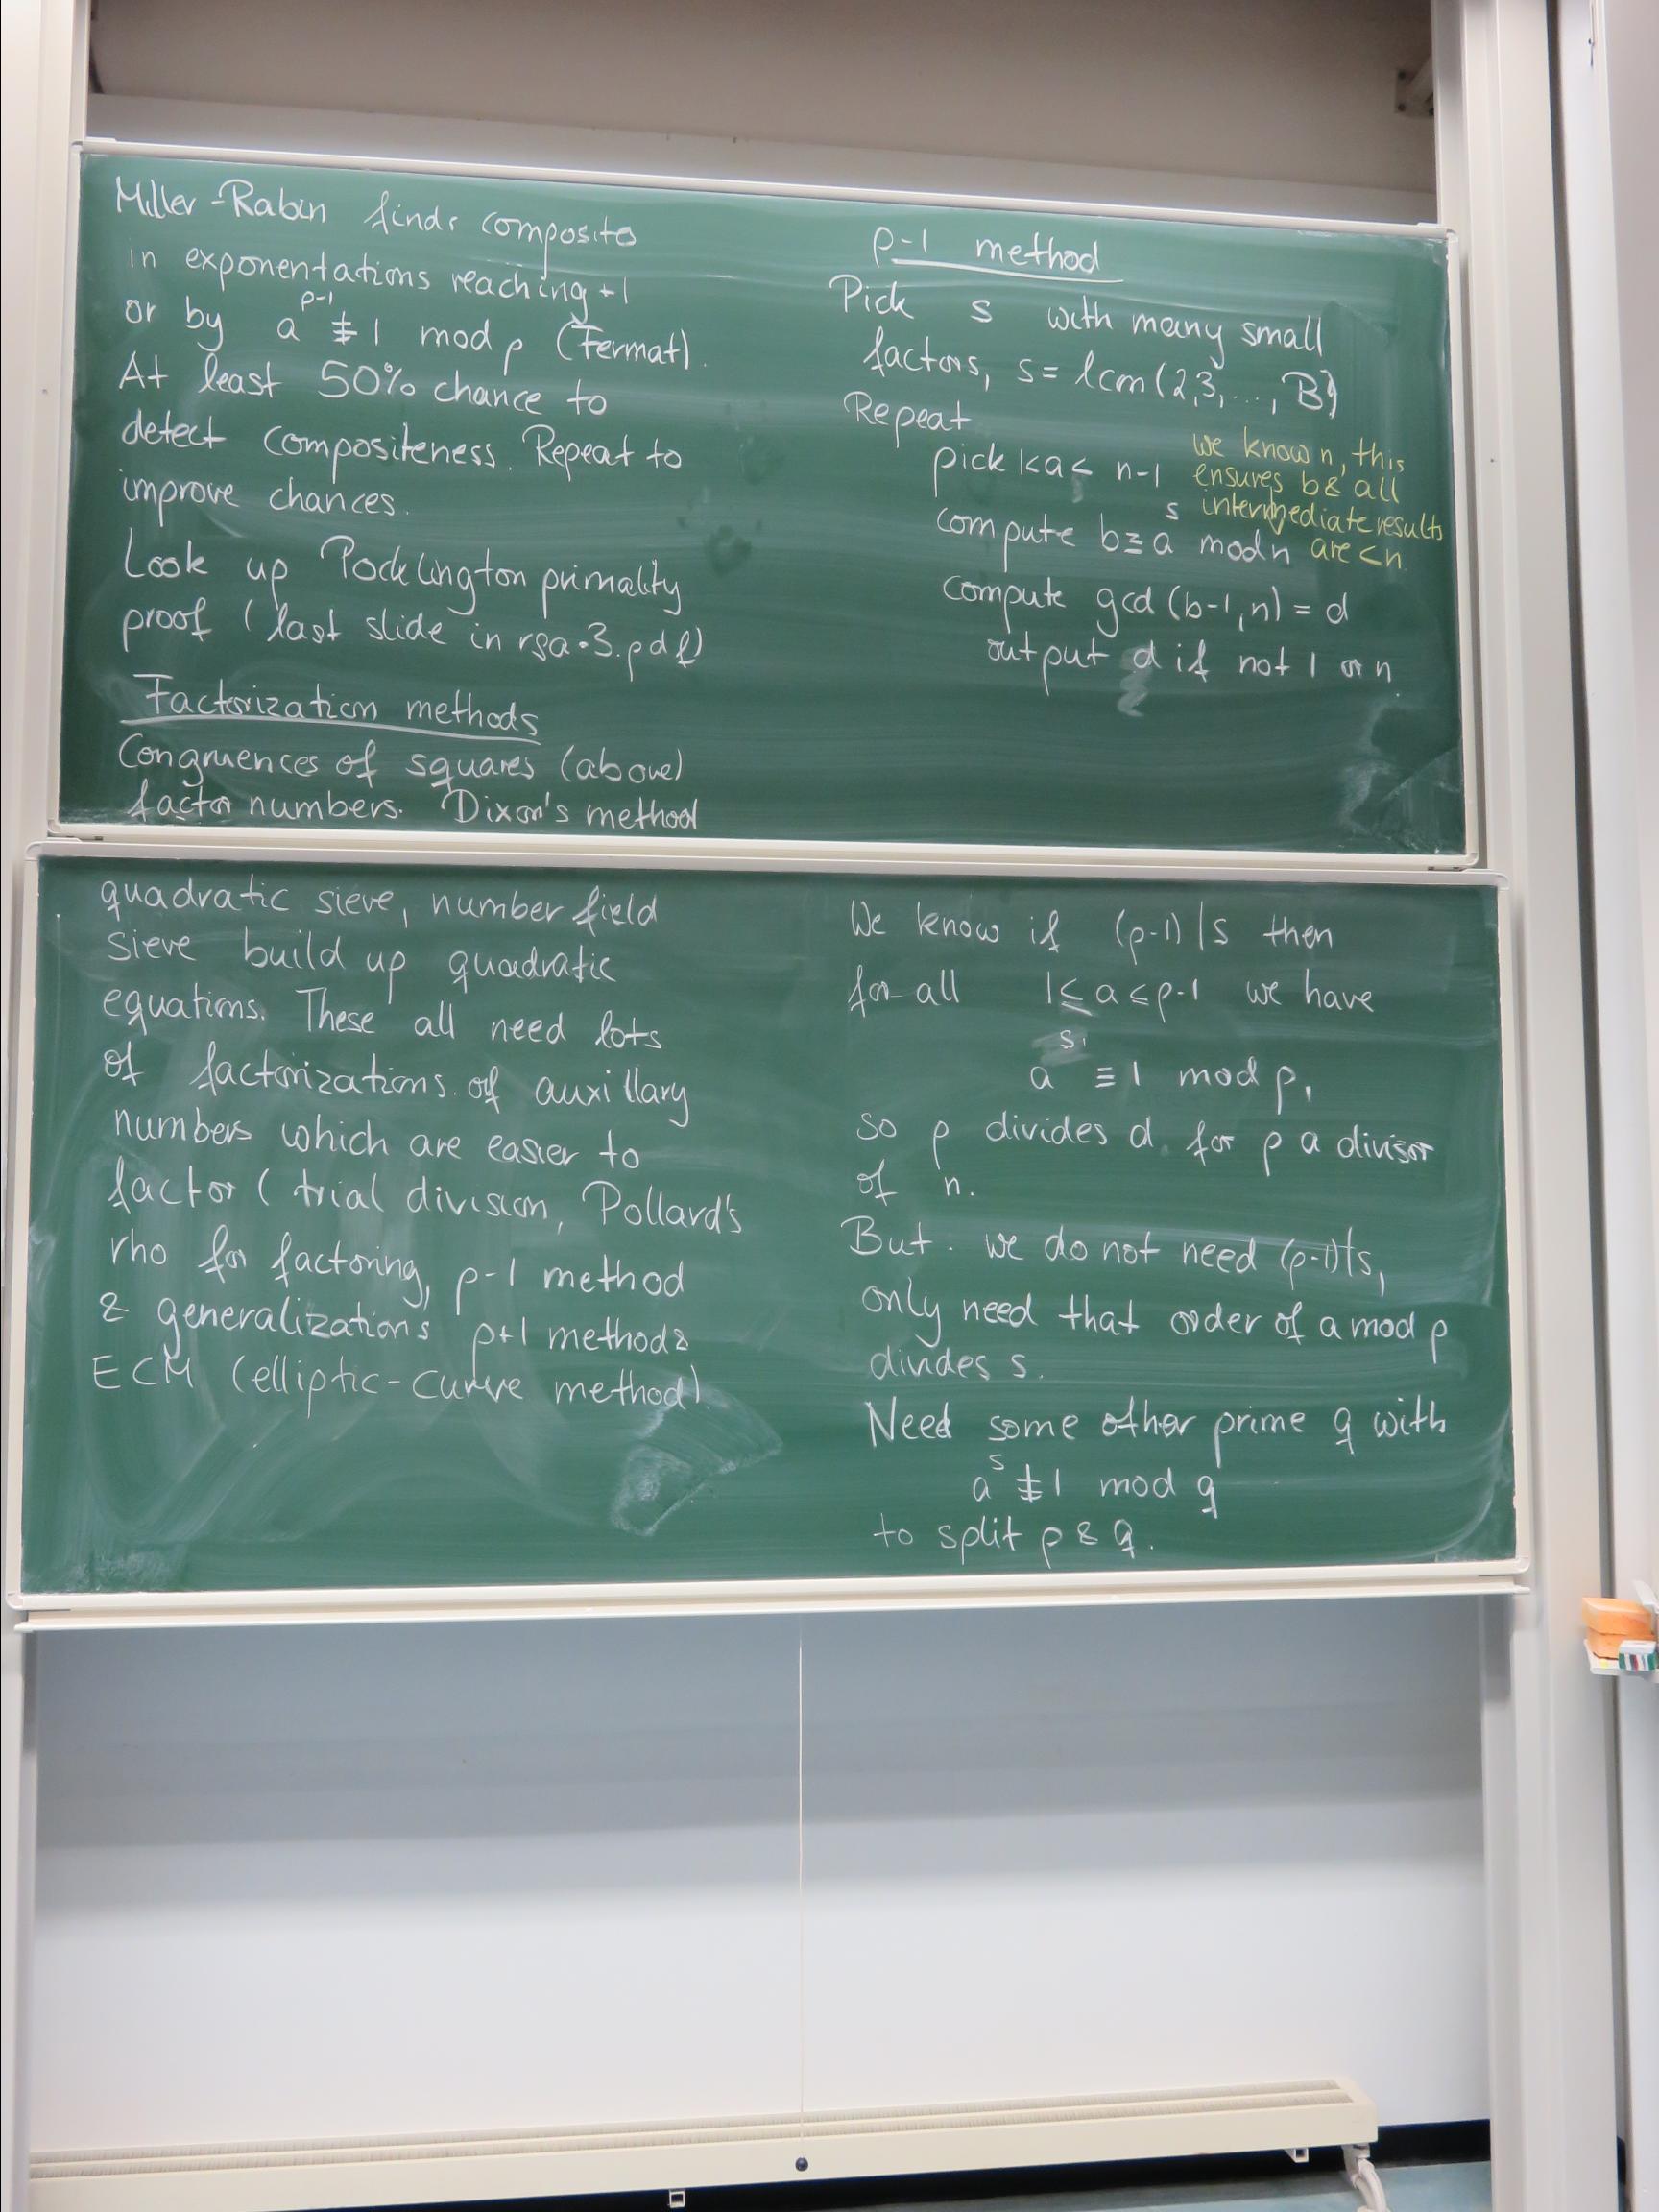 Miller-Rabin finds composite
in exponentations reaching +1
or by a^{p-1} ≢ 1 mod p (Fermat).
At least 50% chance to
detect compositeness. Repeat to
improve chances.
Look up Pocklington primality
proof (last slide in rsa-3.pdf)
Factorization methods
Congruences of squares (above)
factor numbers. Dixon's method
quadratic sieve, number field
sieve build up quadratic
equations. These all need lots
of factorizations of auxillary
numbers which are easier to
factor (trial division, Pollard's
rho for factoring, p-1 method
& generalizations p+1 method &
ECM (elliptic-curve method).
p-1 method
Pick s with many small
factors, s = lcm(2,3,...,B)
Repeat
pick 1<a< n-1
compute b≡a^s mod n
we know n, this
ensures b & all
intermediate results
are <n.
compute gcd (b-1,n) = d
output d if not 1 or n.
We know if (p-1)|s then
for all 1≤ a ≤p-1 we have
a^s ≡ 1 mod p,
so p divides d for p a divisor
of n.
But we do not need (p-1)|s,
only need that order of a mod p
divides s.
Need some other prime q with
a^s ≢ 1 mod q
to split p & q.